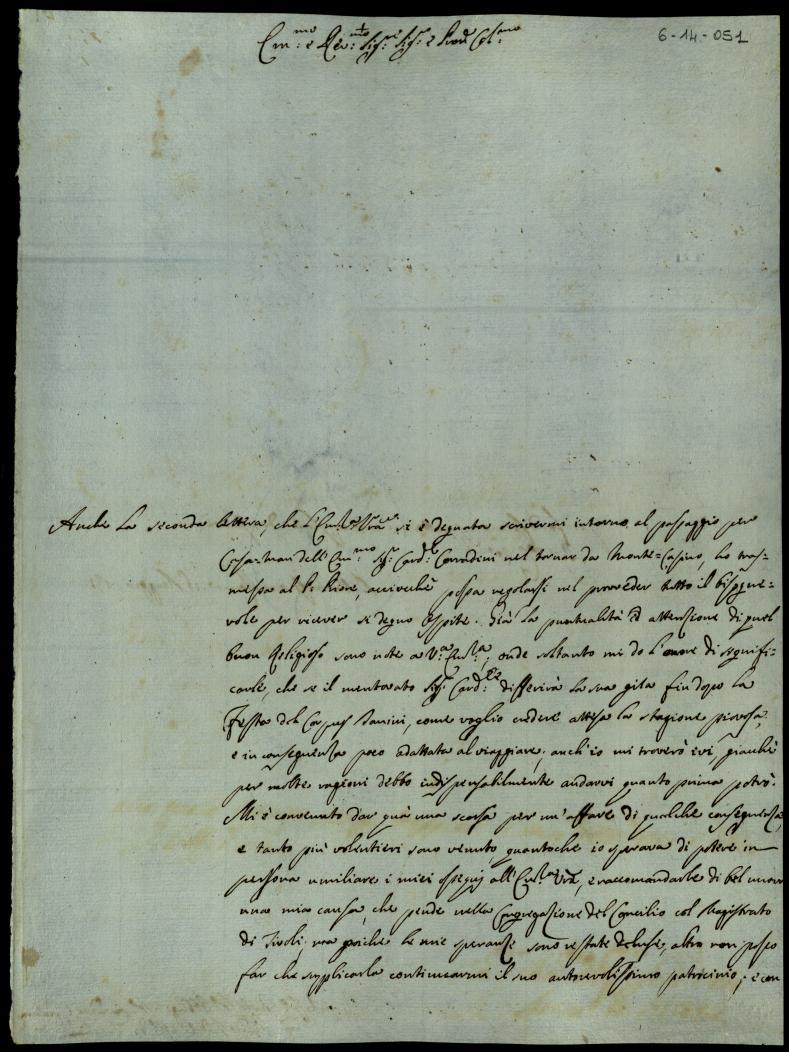 6-14-051
Em:mo e Rev:mo Sig:re Sig:r e Pron Col:mo
Anche la seconda lettera, che l'Em:za V:ra si è degnata scrivermi intorno al passaggio per
Casa=mari dell' Em:mo Sig:r Card:le Corradini nel tornar da Monte=Casino, ho tras=
messa al P. Priore, acciocchè possa regolarsi nel proveder tutto il bisogne=
vole per ricever si degno Ospite. Già la puntualità ed attenzione di quel
buon Religioso sono note a V:a Em:za, onde soltanto mi do l'onore di signifi=
carle, che se il mentovato Sig:r Card:le differirà la sua gita fin dopo la
Festa del Corpus Domini, come voglio credere attesa la stagione piovosa,
e in conseguenza poco adattata al viaggiare, anch'io mi troverò ivi, giacchè
per molte ragioni debbo indispensabilmente andarvi quanto prima potrò.
Mi è convenuto dar quà una scorsa per un'affare di qualche conseguenza,
e tanto più volentieri sono venuto, quantoche io sperava di potere in
persona umiliare i miei ossequj all'Em:za V:ra, e raccomandarle di bel nuovo
una mia causa, che pende nella Congregazione del Concilio col Magistrato
di Tivoli; ma poiche le mie speranze sono restate deluse, altro non posso
far che supplicarla continuarmi il suo autorevolissimo patrocinio; e con